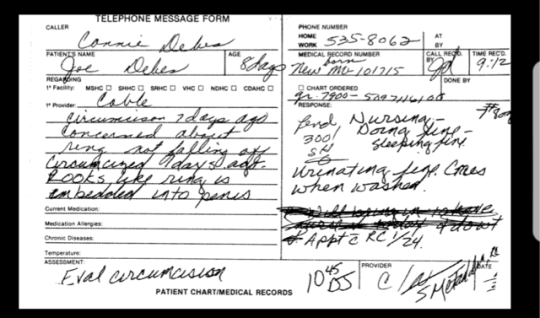 TELEPHONE MESSAGE FORM
CALLER
Connie Debes
PHONE NUMBER
HOME
WORK 535-8062
AT
BY
PATIENT'S NAME
Joe Debes
AGE
8 days
MEDICAL RECORD NUMBER
New born
MO-101715
CALL REC'D.
BY
TIME REC'D.
9:12
REGARDING
1° Facility: MSHC SHHC SRHC VHC NDHC CDAHC
CHART ORDERED
DONE BY
1° Provider: Cable
RESPONSE:
circumcison 7 days ago
Concerned about
ring not falling off
Circumcized 7 days ago.
Looks like ring is
embedded into penis
Nursing-
Doing fine-
Sleeping fine.
Urinating fine Cries
when washed.
Appt c RC 1/24.
Current Medication:
Medication Allergies:
Chronic Diseases:
Temperature:
ASSESSMENT:
Eval circumcision
10 45
DJ
PROVIDER
DATE
PATIENT CHART/MEDICAL RECORDS